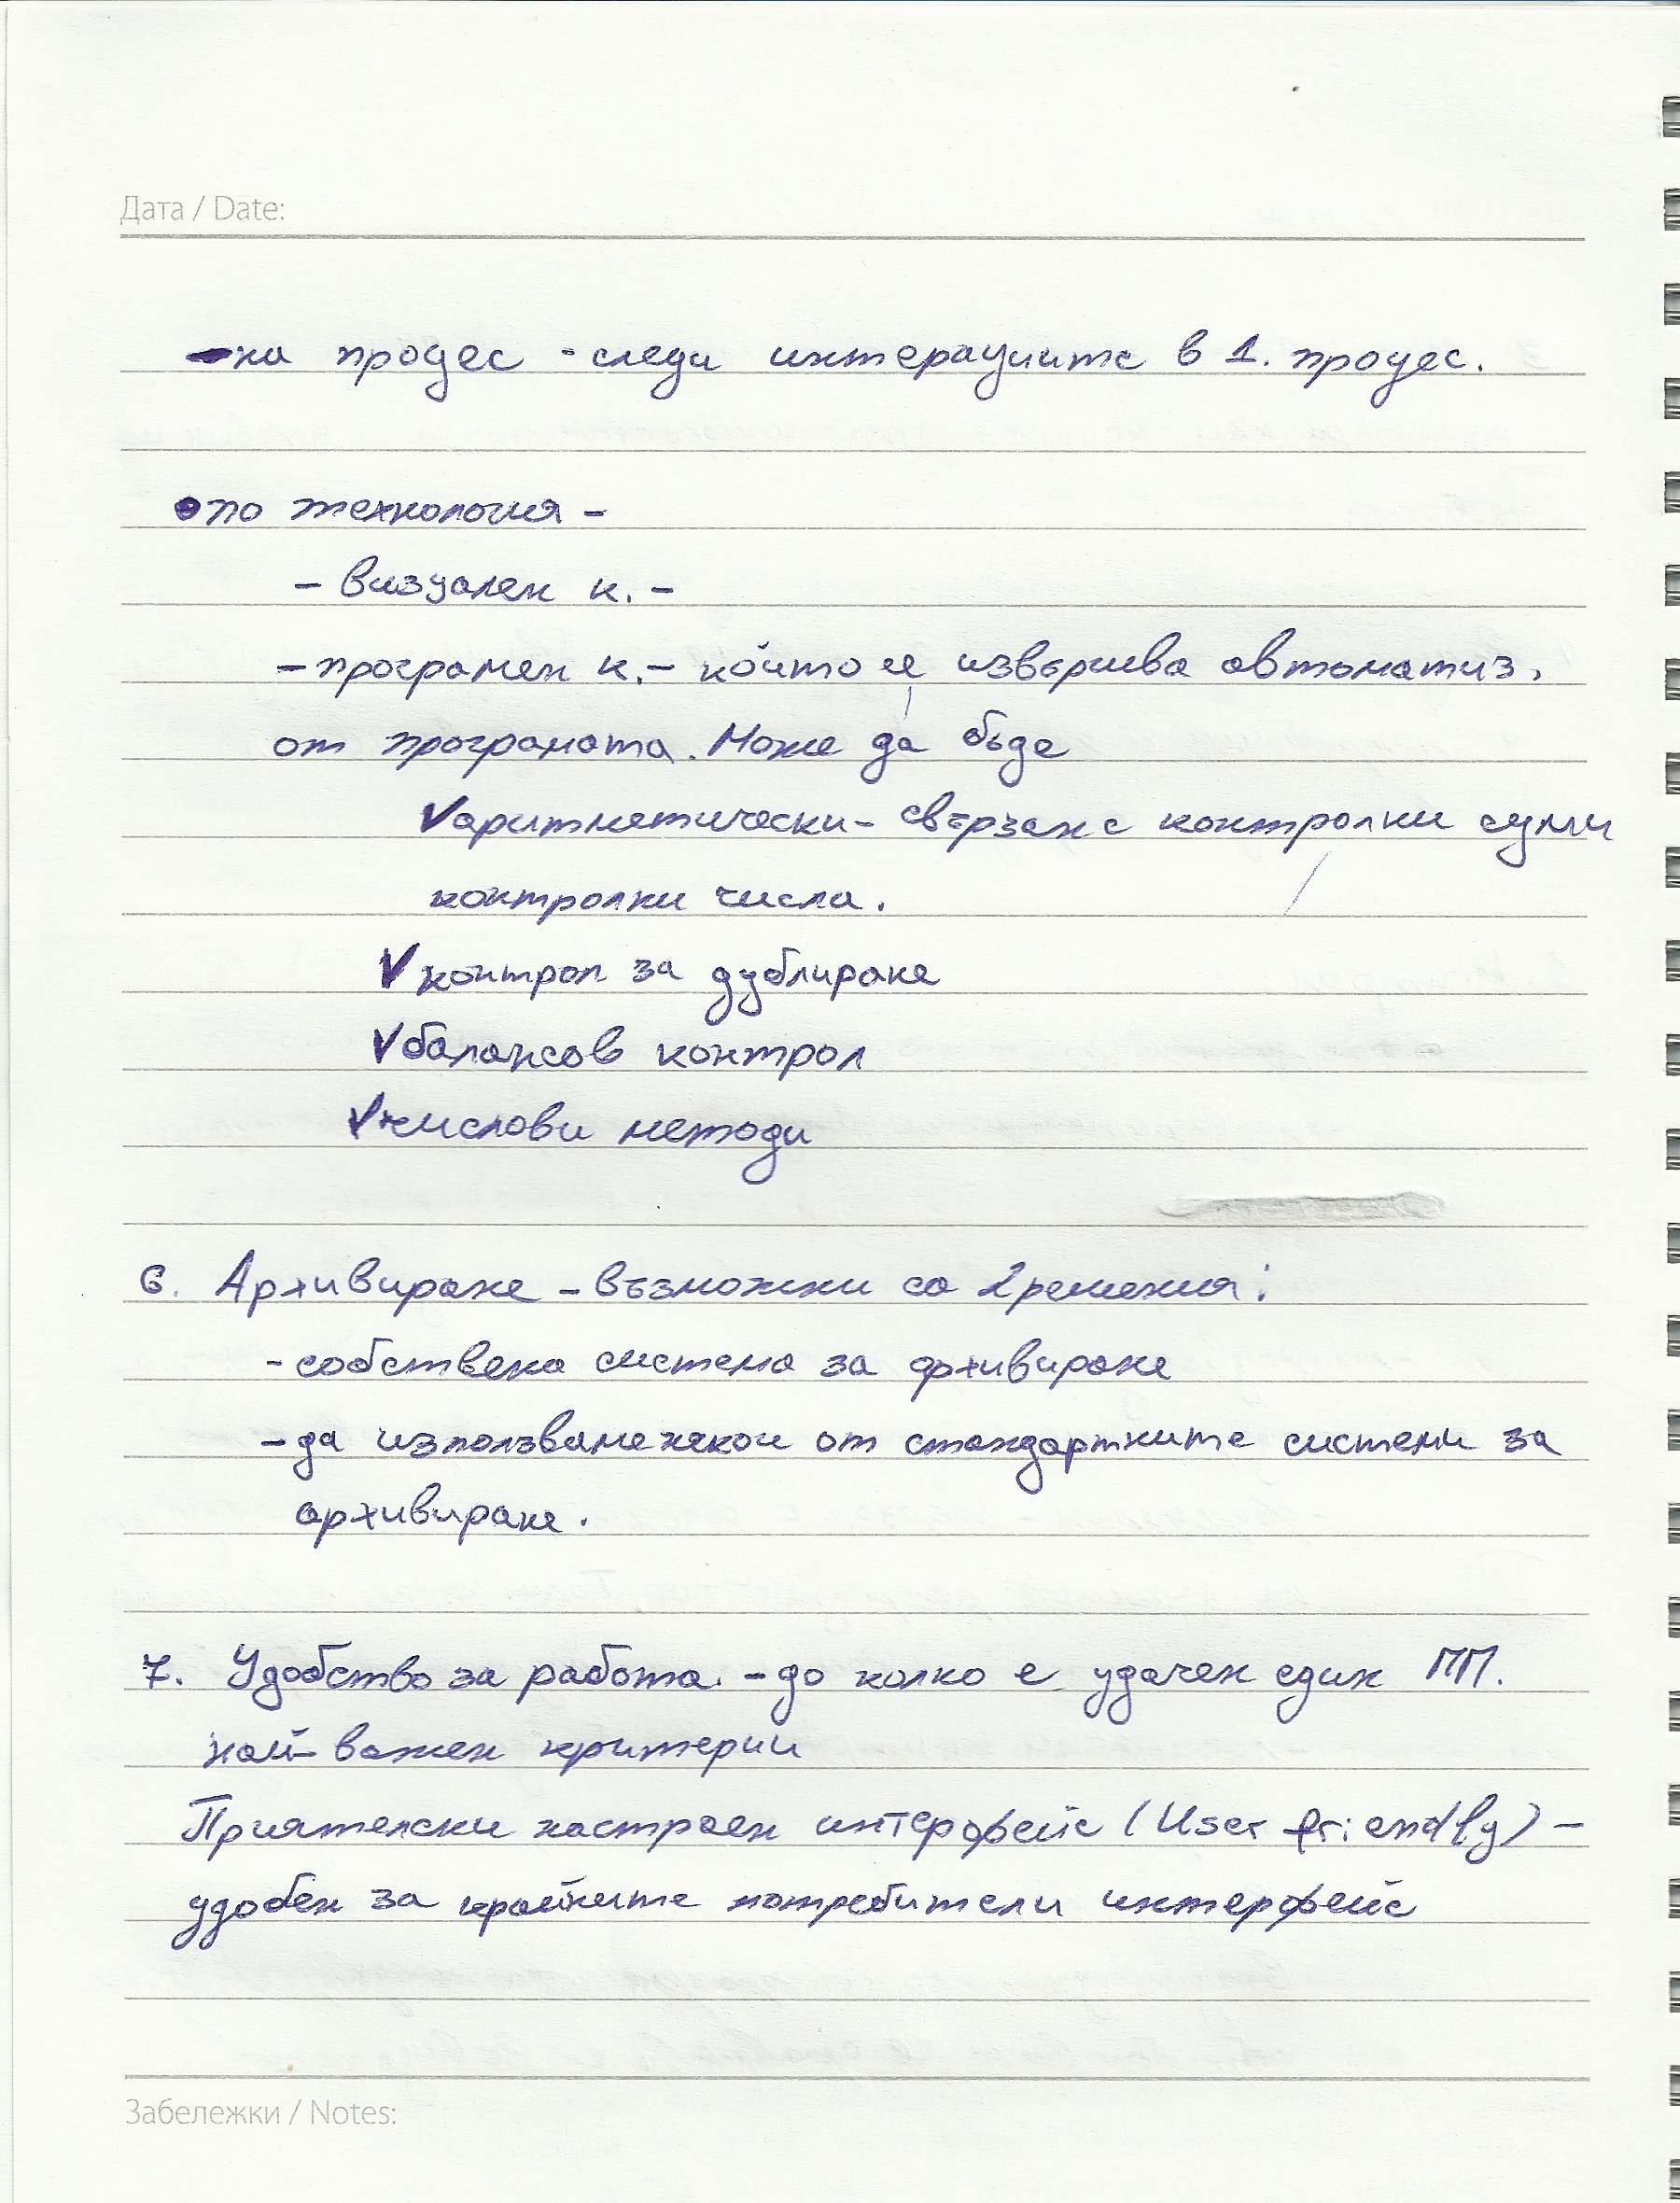 Дата / Date:
- на процес - следи интерациите в 1. процес.
• по технология -
- визуален к. -
- програмен к. - който се извършва автоматиз.
от програмата. Може да бъде
✓ аритметически - свързан с контролни суми
контролни числа.
✓ контрол за дублиране
✓ балансов контрол
✓ числови методи
6. Архивиране - възможни са 2 решения:
- собствена система за архивиране
- да използваме някои от стандартните системи за
архивиране.
7. Удобство за работа. - до колко е удачен един ПП.
най-важен критерии
Приятелски настроен интерфейс (User friendly) -
удобен за крайните потребители интерфейс
Забележки / Notes: